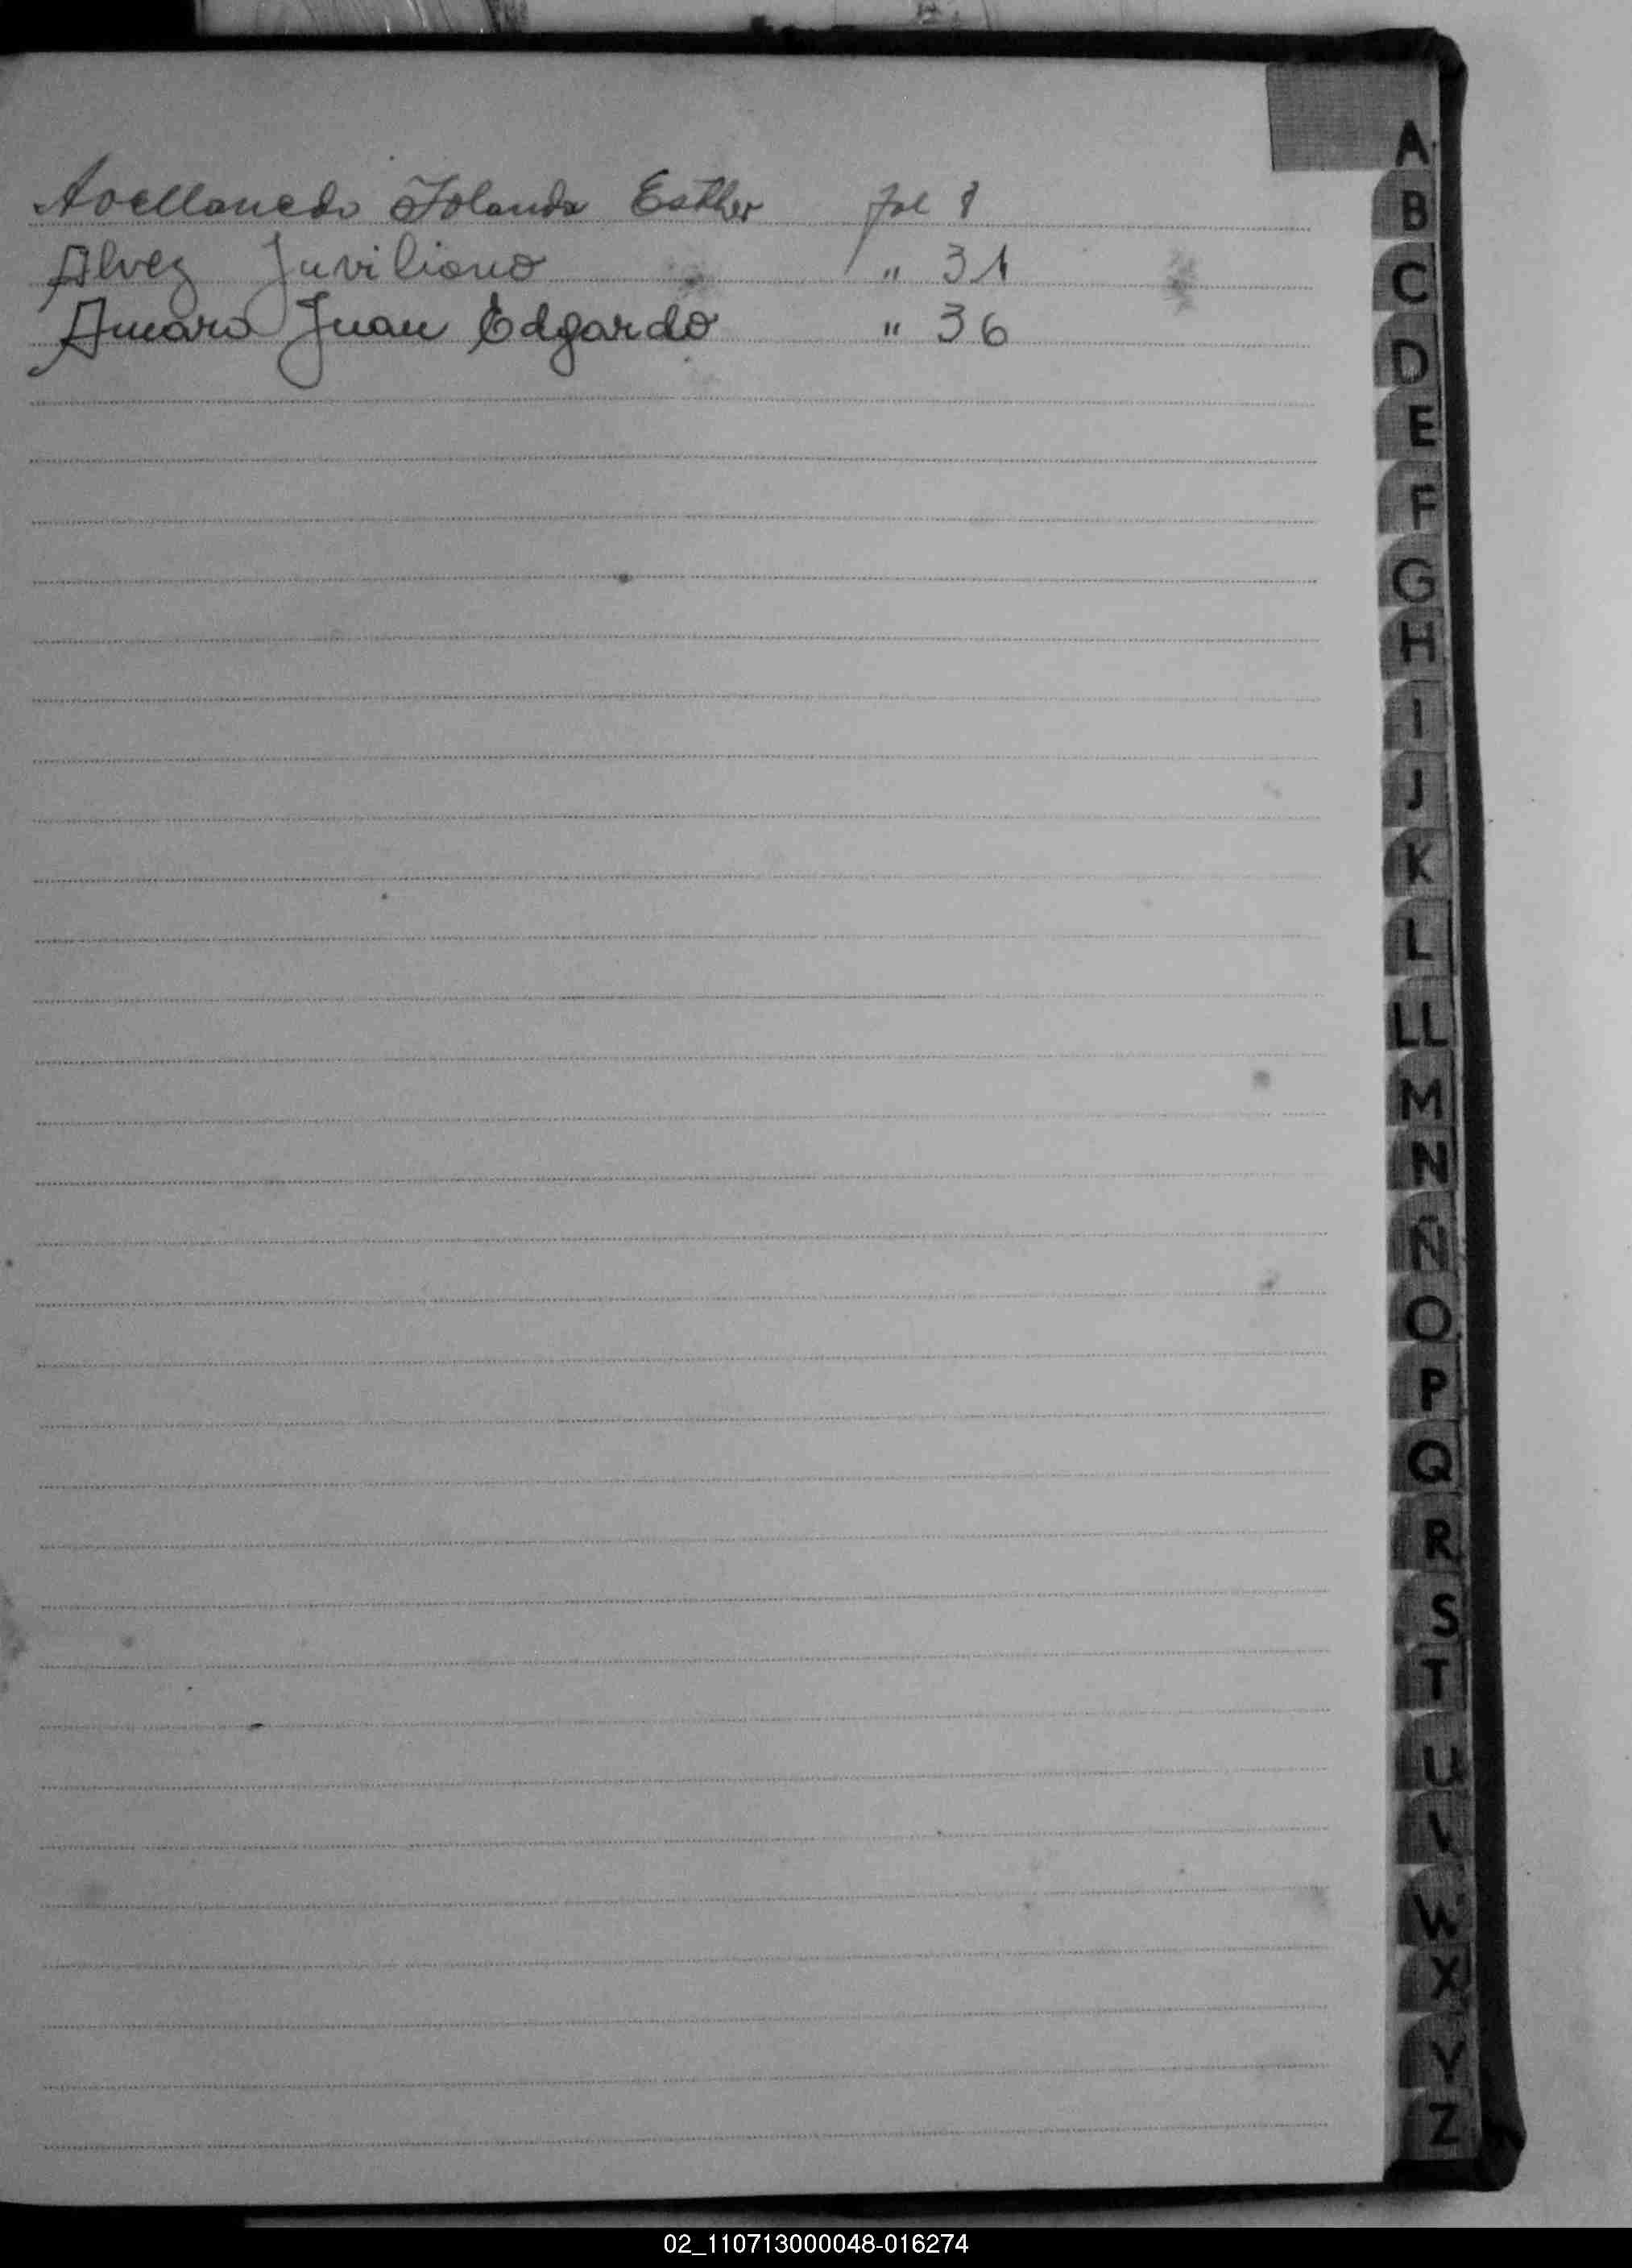 Avellaneda Iolanda Esther fol 8
Alvez Juviliano " 31
Amaro Juan Edgardo " 36
A
B
C
D
E
F
G
H
I
J
K
L
LL
M
N
Ñ
O
P
Q
R
S
T
U
V
W
X
Y
Z
02_110713000048-016274